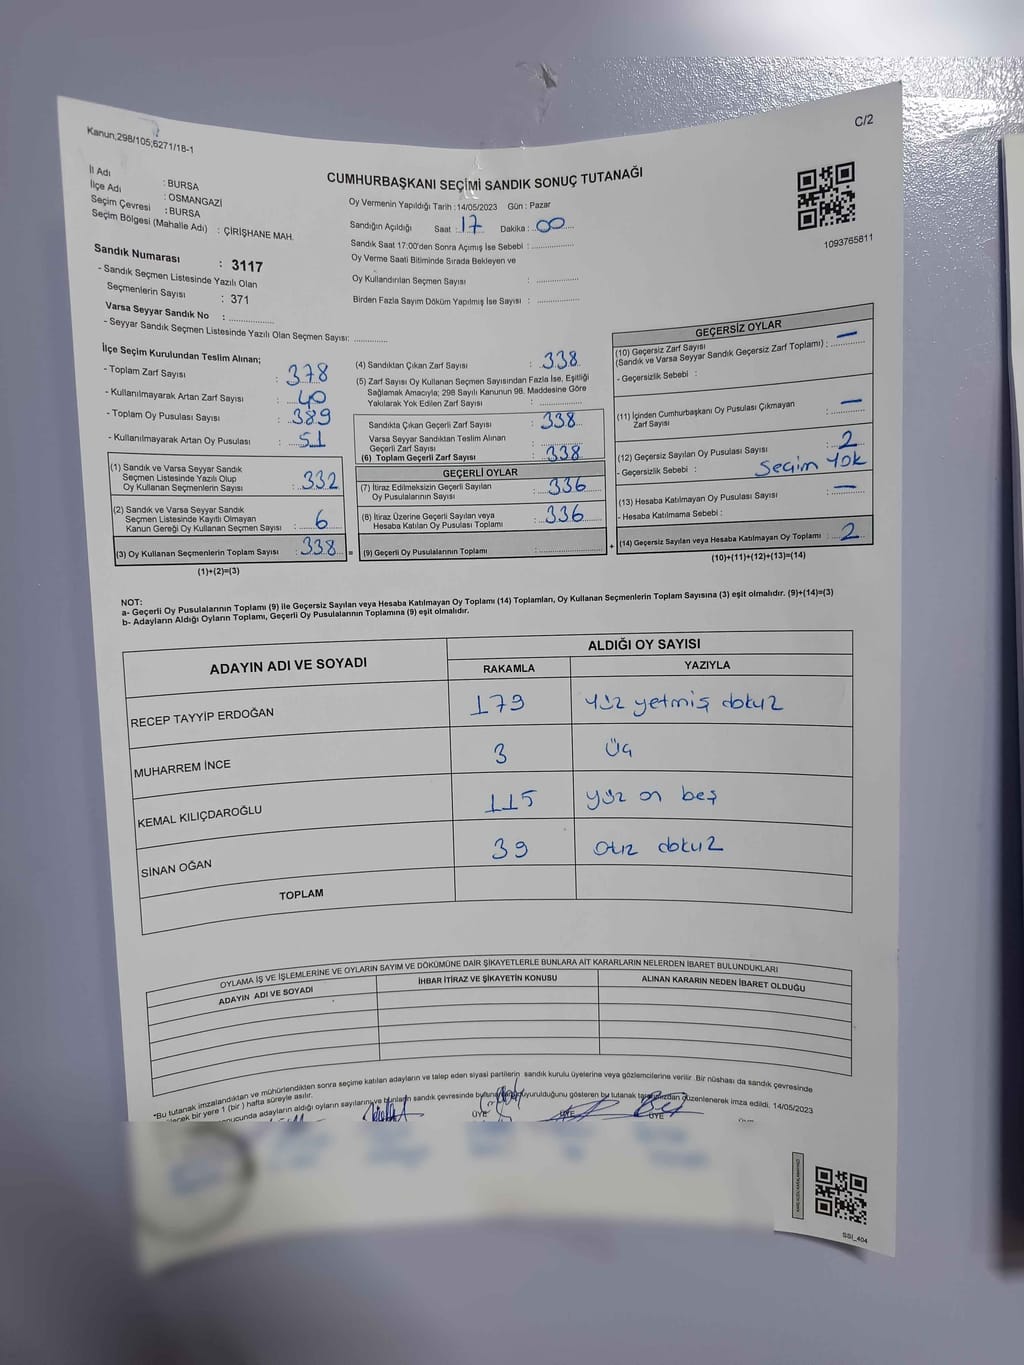 Kanun,298/105,6271/18-1
C/2
CUMHURBAŞKANI SEÇİMİ SANDIK SONUÇ TUTANAĞI
İl Adı : BURSA
İlçe Adı : OSMANGAZİ
Seçim Çevresi : BURSA
Seçim Bölgesi (Mahalle Adı) : ÇİRİŞHANE MAH.
Sandık Numarası : 3117
- Sandık Seçmen Listesinde Yazılı Olan
Seçmenlerin Sayısı : 371
Varsa Seyyar Sandık No : ..............
- Seyyar Sandık Seçmen Listesinde Yazılı Olan Seçmen Sayısı: ............
Oy Vermenin Yapıldığı Tarih :14/05/2023 Gün : Pazar
Sandığın Açıldığı Saat : 17 Dakika : 00
Sandık Saat 17:00'den Sonra Açımış İse Sebebi : ..............
Oy Verme Saati Bitiminde Sırada Bekleyen ve
Oy Kullandırılan Seçmen Sayısı : ..............
Birden Fazla Sayım Döküm Yapılmış İse Sayısı : ..............
1093765811
İlçe Seçim Kurulundan Teslim Alınan;
- Toplam Zarf Sayısı : 378
- Kullanılmayarak Artan Zarf Sayısı : 40
- Toplam Oy Pusulası Sayısı : 389
- Kullanılmayarak Artan Oy Pusulası : 51
(1) Sandık ve Varsa Seyyar Sandık
Seçmen Listesinde Yazılı Olup
Oy Kullanan Seçmenlerin Sayısı : 332
(2) Sandık ve Varsa Seyyar Sandık
Seçmen Listesinde Kayıtlı Olmayan
Kanun Gereği Oy Kullanan Seçmen Sayısı : 6
(3) Oy Kullanan Seçmenlerin Toplam Sayısı : 338 =
(1)+(2)=(3)
(4) Sandıktan Çıkan Zarf Sayısı : 338
(5) Zarf Sayısı Oy Kullanan Seçmen Sayısından Fazla İse, Eşitliği
Sağlamak Amacıyla; 298 Sayılı Kanunun 98. Maddesine Göre
Yakılarak Yok Edilen Zarf Sayısı : ..............
Sandıkta Çıkan Geçerli Zarf Sayısı : 338
Varsa Seyyar Sandıktan Teslim Alınan
Geçerli Zarf Sayısı : ..............
(6) Toplam Geçerli Zarf Sayısı : 338
GEÇERLİ OYLAR
(7) İtiraz Edilmeksizin Geçerli Sayılan
Oy Pusulalarının Sayısı : 336
(8) İtiraz Üzerine Geçerli Sayılan veya
Hesaba Katılan Oy Pusulası Toplamı : 336
(9) Geçerli Oy Pusulalarının Toplamı : .............. +
GEÇERSİZ OYLAR
(10) Geçersiz Zarf Sayısı
(Sandık ve Varsa Seyyar Sandık Geçersiz Zarf Toplamı) : —
- Geçersizlik Sebebi :
(11) İçinden Cumhurbaşkanı Oy Pusulası Çıkmayan
Zarf Sayısı : —
(12) Geçersiz Sayılan Oy Pusulası Sayısı : 2
- Geçersizlik Sebebi : Seçim Yok
(13) Hesaba Katılmayan Oy Pusulası Sayısı : —
- Hesaba Katılmama Sebebi :
(14) Geçersiz Sayılan veya Hesaba Katılmayan Oy Toplamı : 2
(10)+(11)+(12)+(13)=(14)
NOT:
a- Geçerli Oy Pusulalarının Toplamı (9) ile Geçersiz Sayılan veya Hesaba Katılmayan Oy Toplamı (14) Toplamları, Oy Kullanan Seçmenlerin Toplam Sayısına (3) eşit olmalıdır. (9)+(14)=(3)
b- Adayların Aldığı Oyların Toplamı, Geçerli Oy Pusulalarının Toplamına (9) eşit olmalıdır.
ADAYIN ADI VE SOYADI ALDIĞI OY SAYISI
RAKAMLA YAZIYLA
RECEP TAYYİP ERDOĞAN 179 yüz yetmiş dokuz
MUHARREM İNCE 3 Üç
KEMAL KILIÇDAROĞLU 115 yüz on beş
SİNAN OĞAN 39 otuz dokuz
TOPLAM
OYLAMA İŞ VE İŞLEMLERİNE VE OYLARIN SAYIM VE DÖKÜMÜNE DAİR ŞİKAYETLERLE BUNLARA AİT KARARLARIN NELERDEN İBARET BULUNDUKLARI
ADAYIN ADI VE SOYADI İHBAR İTİRAZ VE ŞİKAYETİN KONUSU ALINAN KARARIN NEDEN İBARET OLDUĞU
*Bu tutanak imzalandıktan ve mühürlendikten sonra seçime katılan adayların ve talep eden siyasi partilerin sandık kurulu üyelerine veya gözlemcilerine verilir .Bir nüshası da sandık çevresinde
bir yere 1 (bir ) hafta süreyle asılır.
adayların aldığı oyların sayılarını ve bunların sandık çevresinde duyurulduğunu gösteren bu tutanak düzenlenerek imza edildi. 14/05/2023
ÜYE ÜYE ÜYE
SSI_404